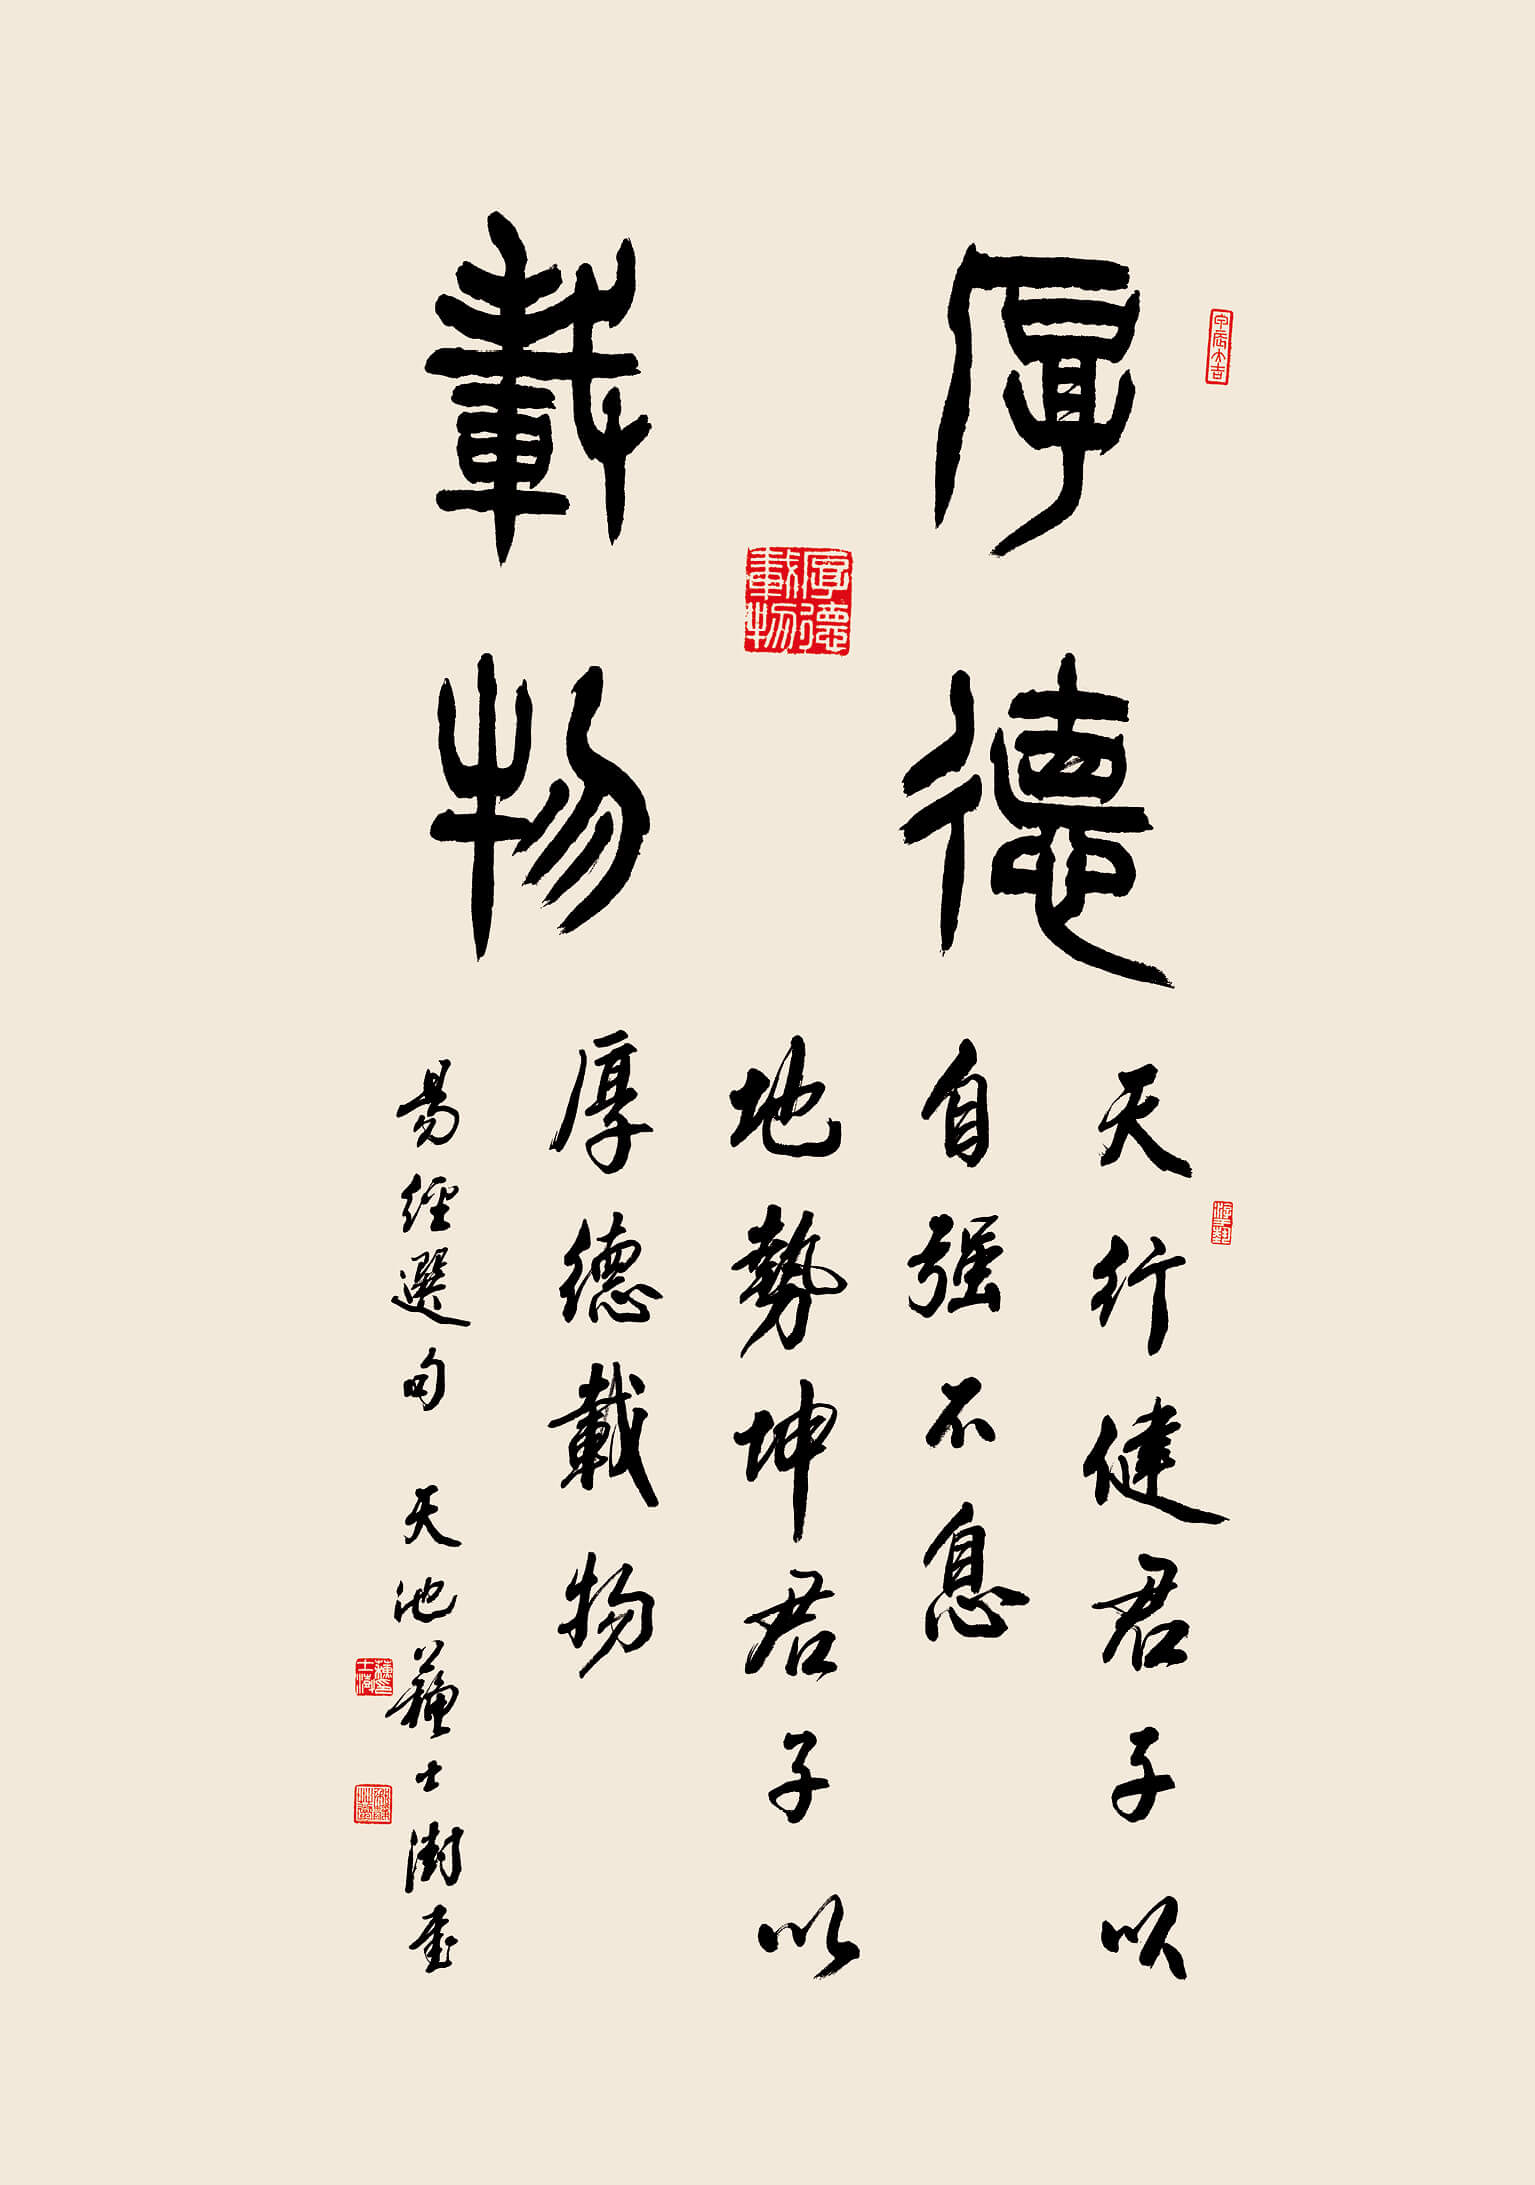 厚德
載物
厚德載物
天行健君子以
自强不息
地勢坤君子以
厚德載物
易經選句 天池蘇士澍書